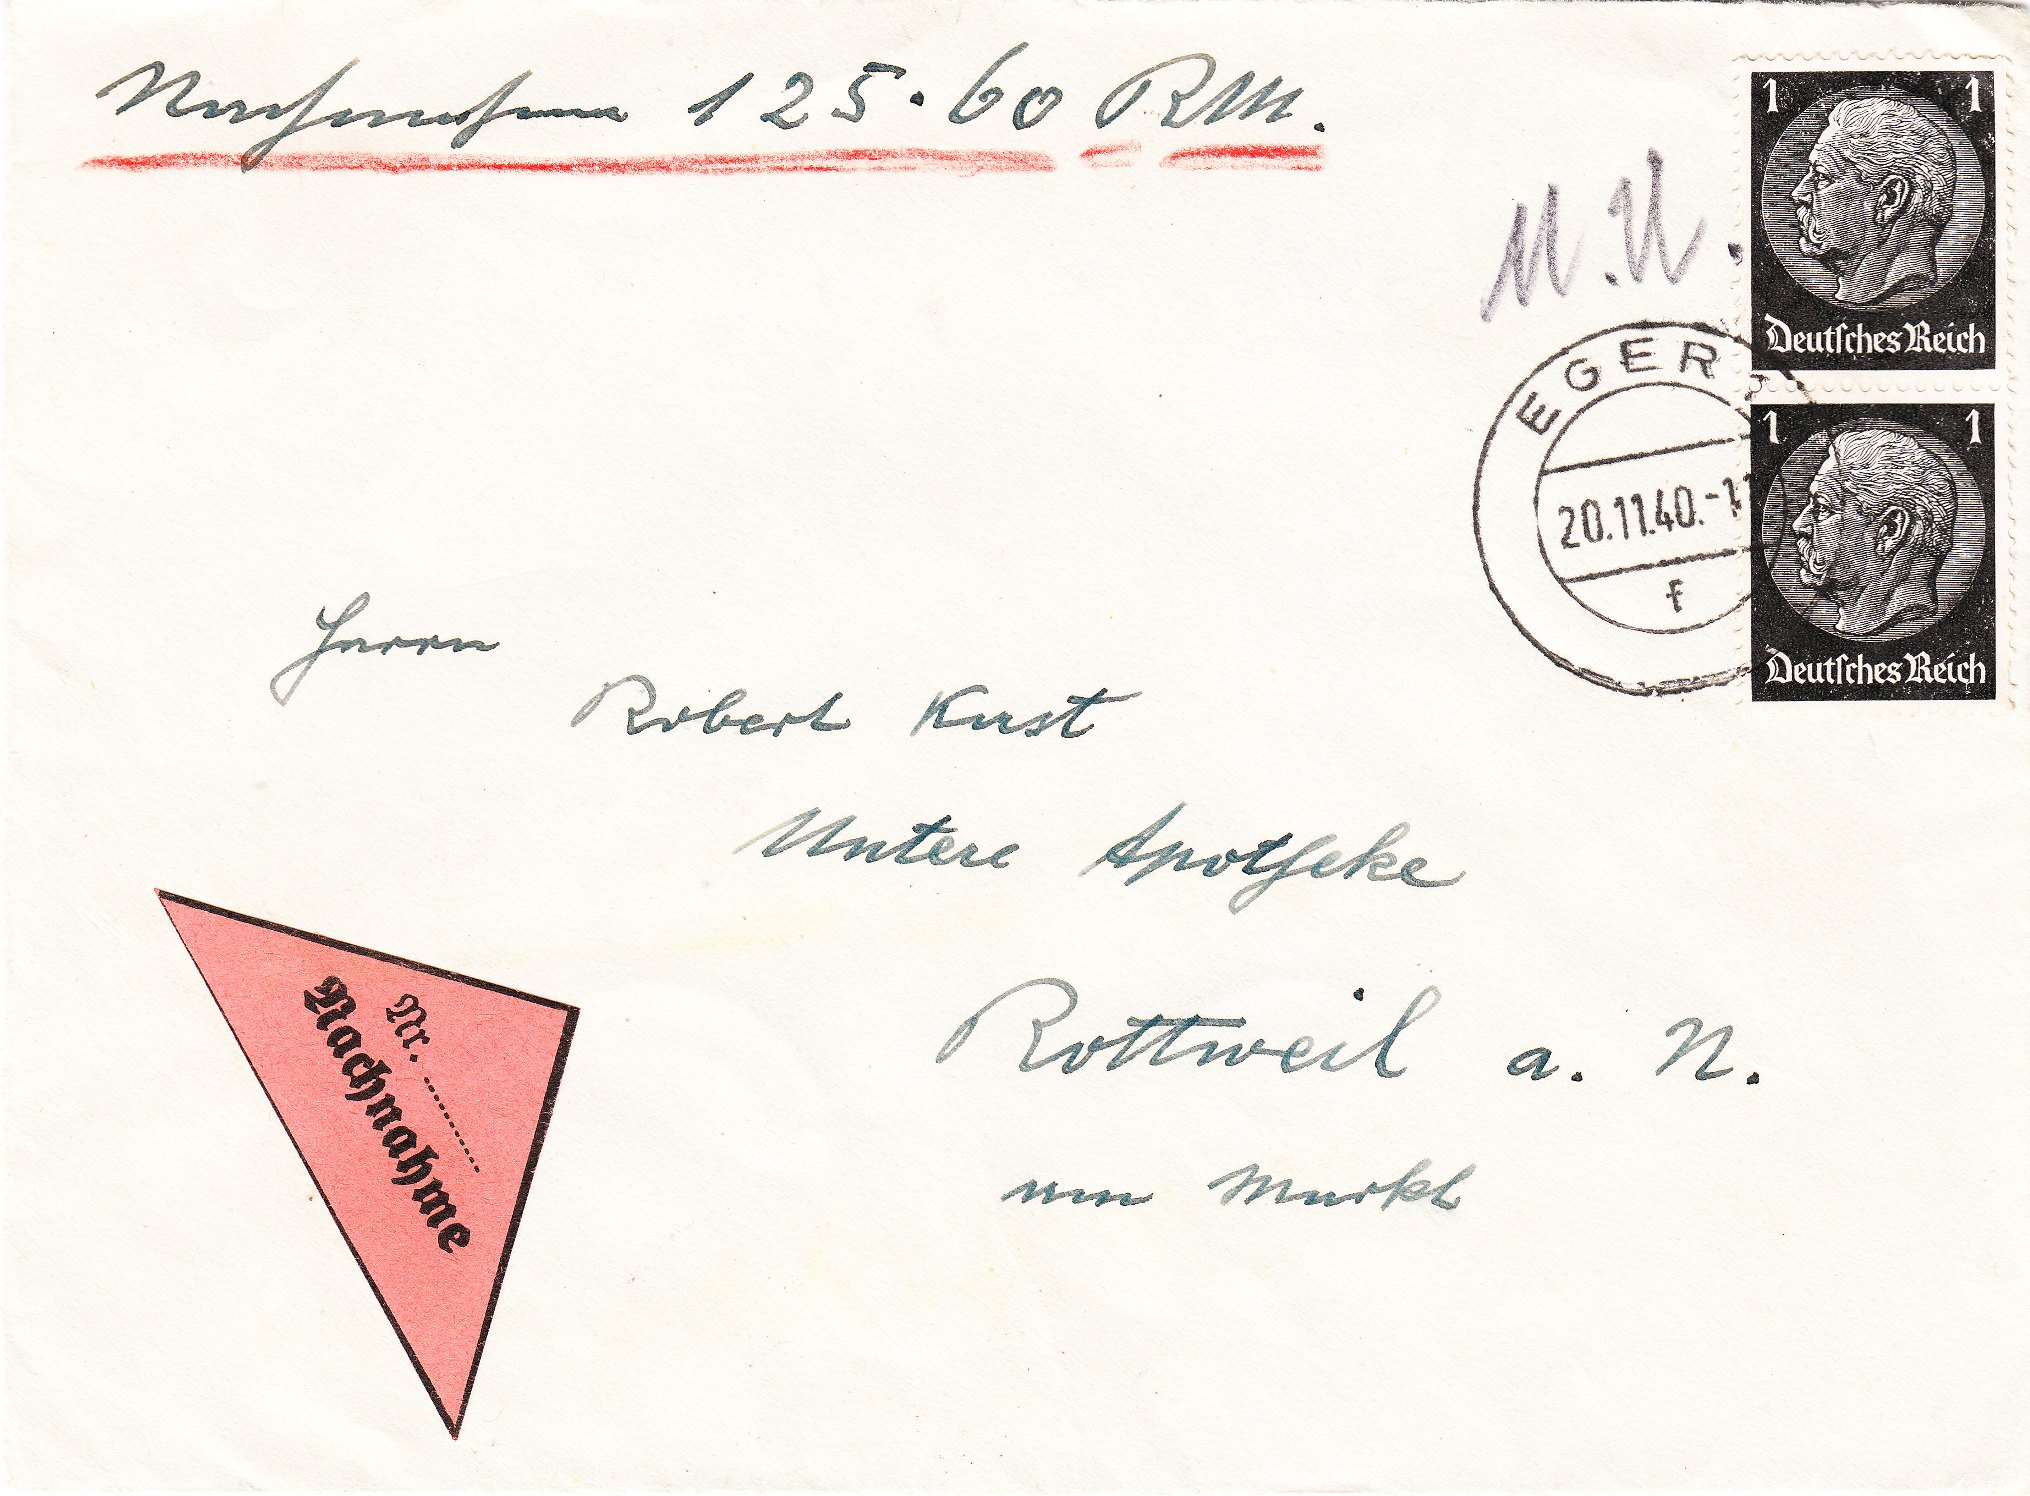 Nachnahme 125.60 RM.
N. N.
1 1
Deutsches Reich
EGER
20.11.40.-1
f
1 1
Deutsches Reich
Herrn
Robert Kast
Untere Apotheke
Rottweil a. N.
am Markt
Nr.
Nachnahme